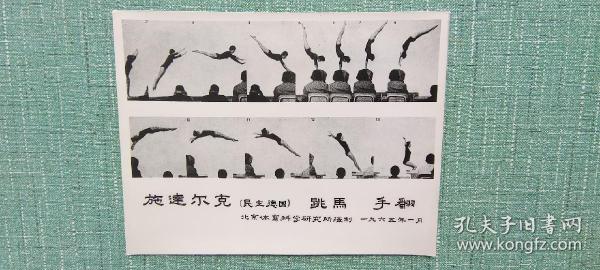 施達尔克 (民主德国) 跳馬 手翻
北京体育科学研究所摄制 一九六五年一月
孔夫子旧书网
www.kongfz.com